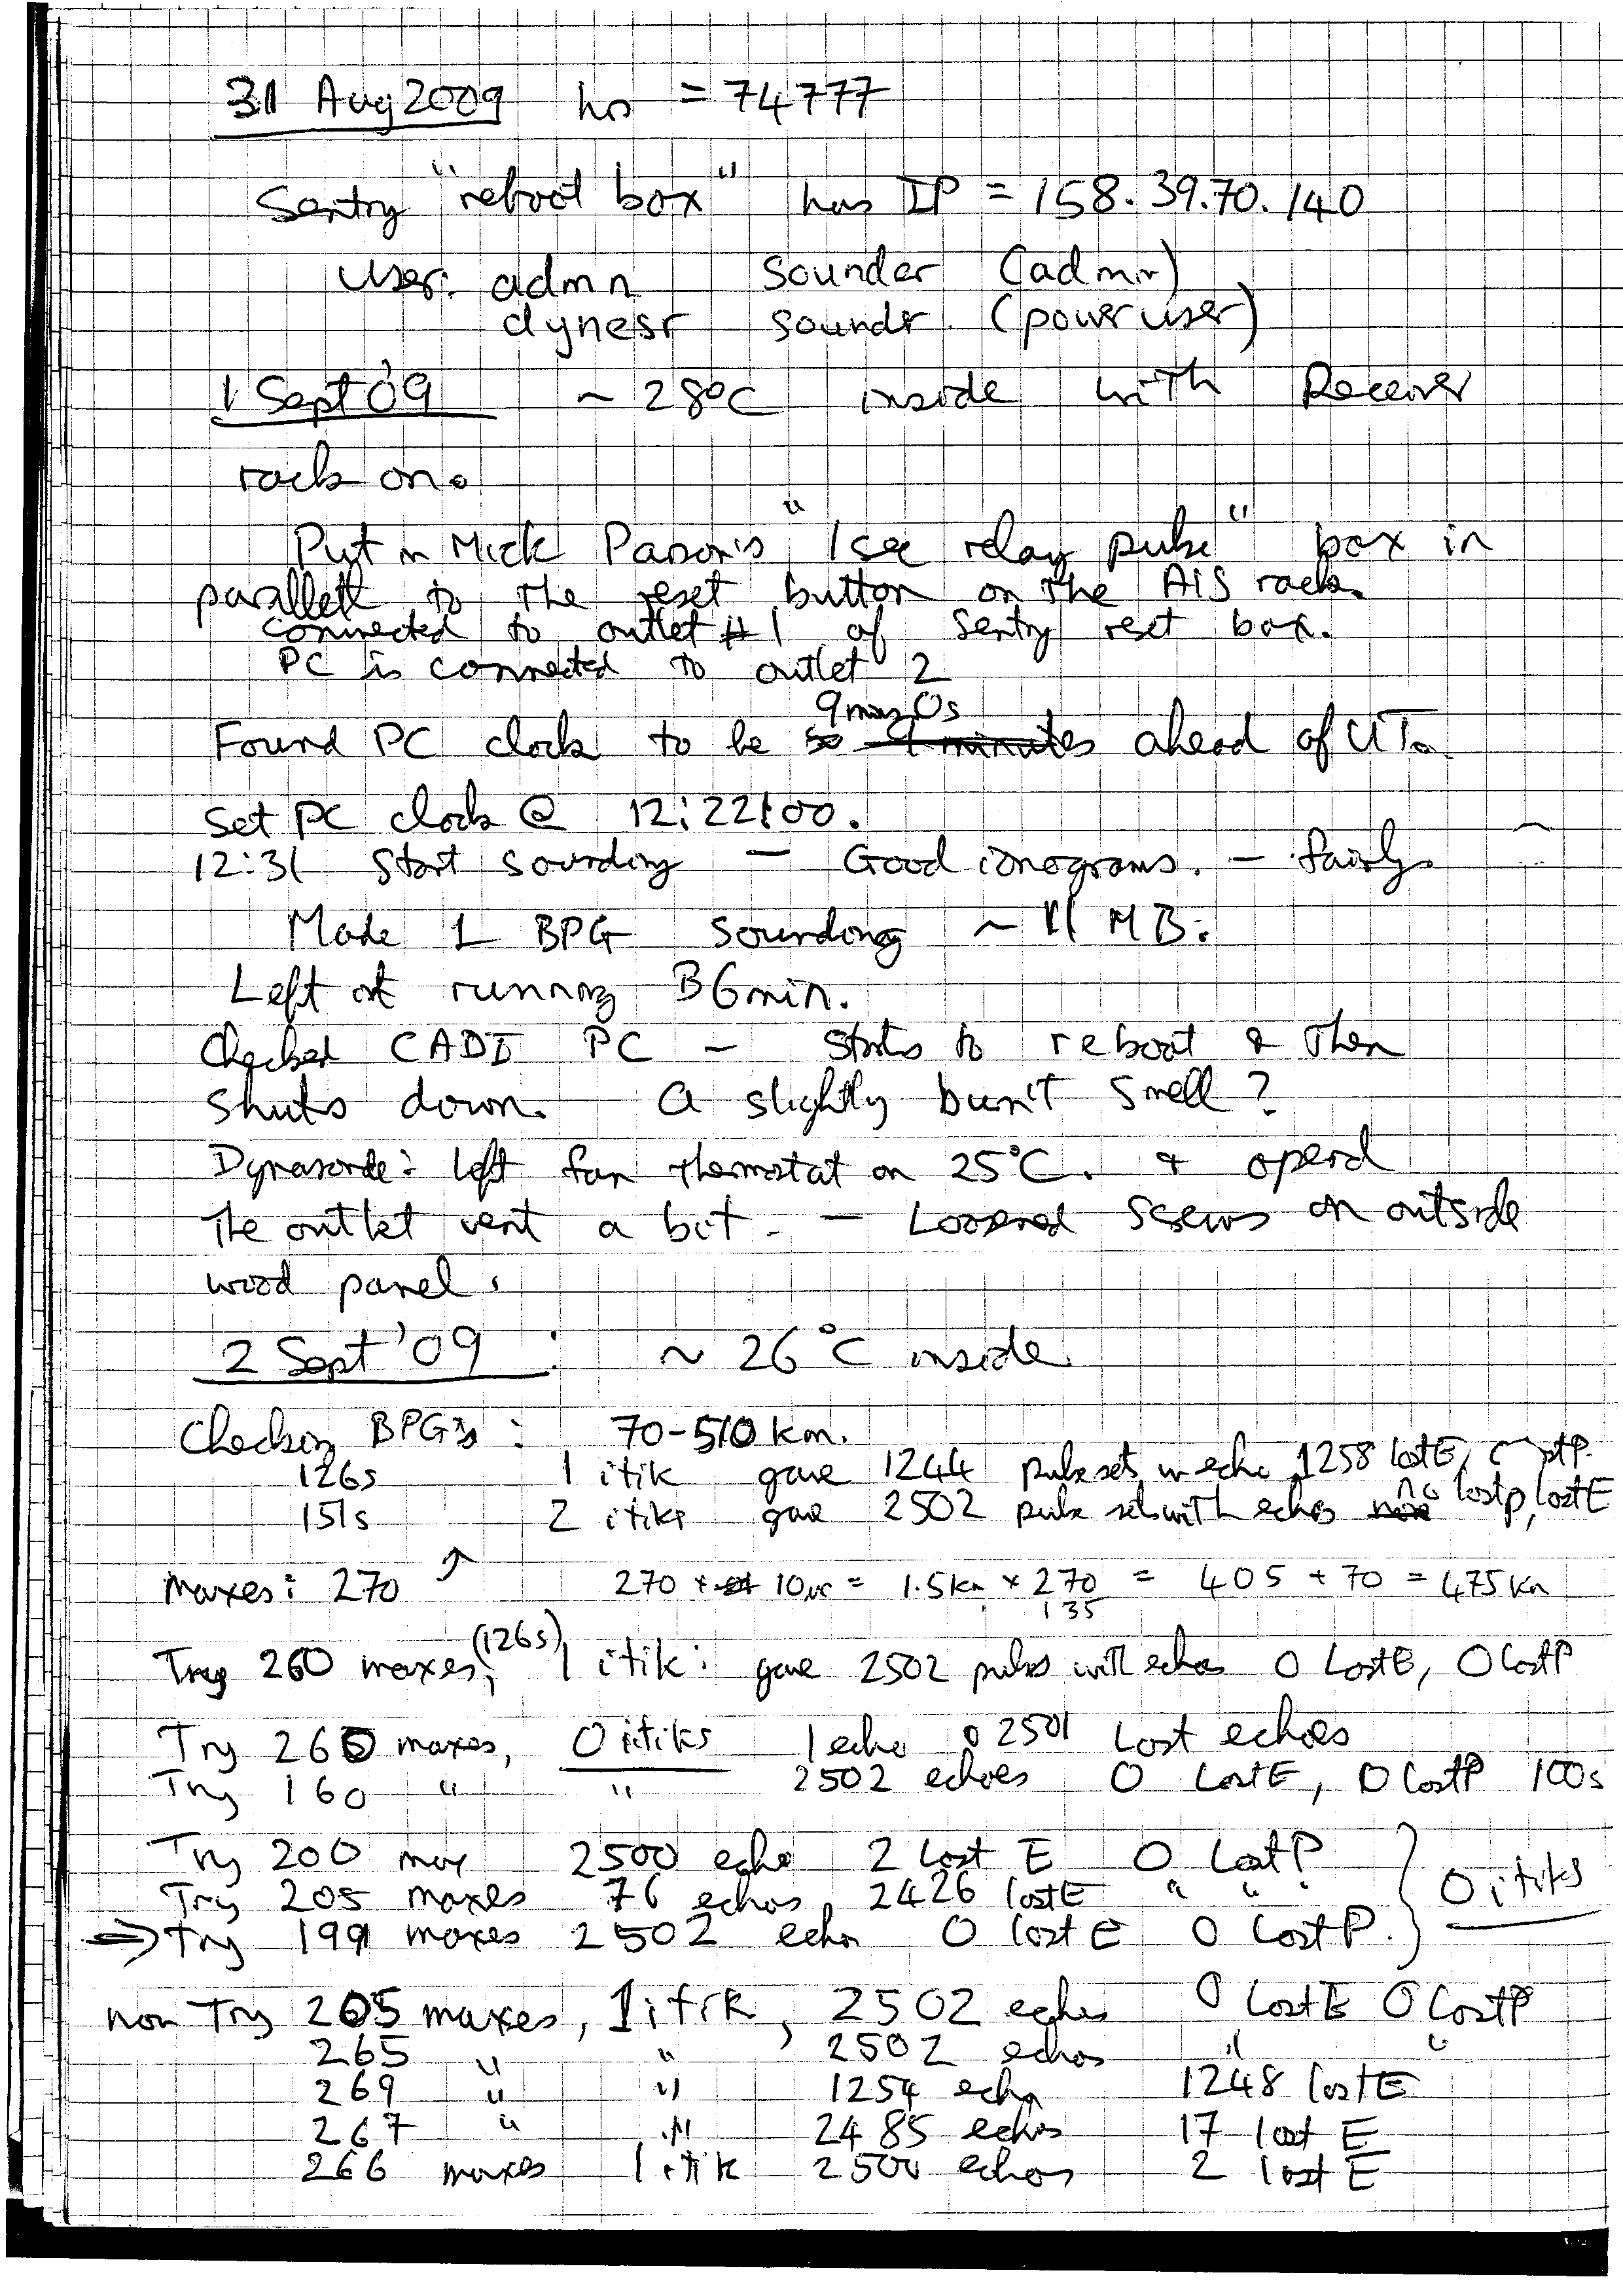 31 Aug 2009 hrs = 74777
Sentry "reboot box" has IP = 158.39.70.140
user: admn sounder (admin)
dynesr soundr. (power user)
1 Sept 09 ~ 28°C inside with Receiver
rack on.
Put in Mick Parson's "1 sec relay pulse" box in
parallell to the reset button on the AIS rack.
connected to outlet #1 of Sentry reset box.
PC is connected to outlet 2
9 mins 0s
Found PC clock to be so 9 minutes ahead of UT.
Set PC clock @ 12:22:00.
12:31 Start sounding — Good ionograms. — fairly
Made 1 BPG sounding ~ 11 MB.
Left at running B6min.
Checked CADI PC — starts to reboot & then
shuts down. a slightly burn't smell?
Dynasonde: left fan thermostat on 25°C. & opend
The outlet vent a bit. — Loosened screws on outside
wood panel.
2 Sept '09 : ~ 26°C inside
Checking BPG's : 70-510 km.
126s 1 itik gave 1244 pulse sets w echo, 1258 lostE,
151s 2 itiks gave 2502 pulse sets with echos no lostp, lostE
maxes: 270 ↗ 270 * 10us = 1.5km * 270 = 405 + 70 = 475 km
135
Try 260 maxes, (126s) 1 itik: gave 2502 pulses with echos 0 LostE, 0 lostP
Try 260 maxes, 0 itiks 1 echo 2501 Lost echoes
Try 160 " " 2502 echoes 0 LostE, 0 LostP 100s
Try 200 max 2500 echo 2 Lost E 0 LostP
Try 205 maxes 76 echos 2426 lostE " " } 0 itiks
⇒ Try 199 maxes 2502 echo 0 lost E 0 Lost P.
now Try 205 maxes, 1 itik, 2502 echos 0 LostE 0 LostP
265 " " 2502 echos " "
269 " " 1254 echo 1248 lostE
267 " " 2485 echos 17 lost E
266 maxes 1 itik 2500 echos 2 lost E